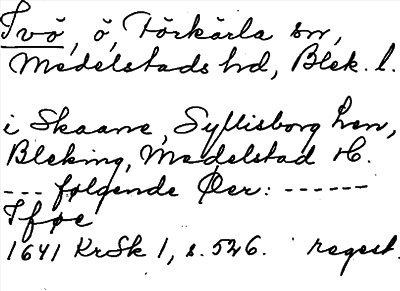 Ivö, ö, Torkärla sn,
Medelstads hd, Blek. l.
i Skaane, Syllisborg Len,
Bleking, Medelstad H.
--- følgende Øer: ------
Iføe
1641 KrSk 1, s. 526. regest.